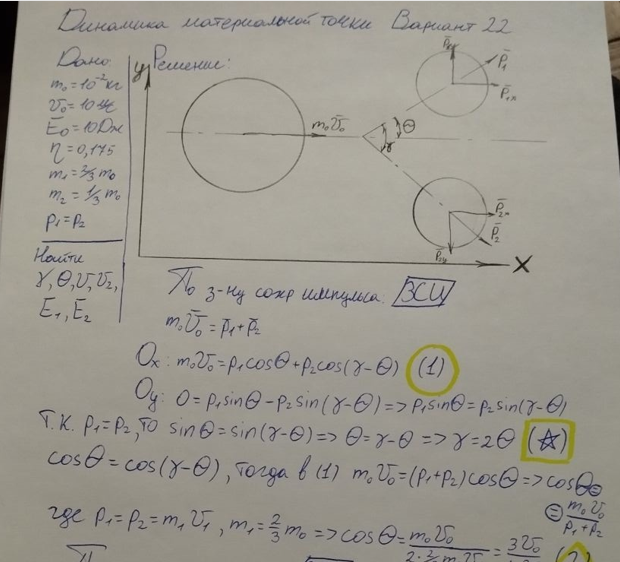 Динамика материальной точки Вариант 22
Дано
m₀=10⁻²кг
E₀=10Дж
η=0,175
m₁=2/3 m₀
m₂=1/3 m₀
p₁=p₂
Найти
E₁, E₂
Решение:
y
m₀v̄₀
θ
γ
p̄₁
p̄₁ₓ
p̄₂ₓ
p̄₂
p̄₂y
X
По з-ну сохр импульса: ЗСИ
m₀v̄₀=p̄₁+p̄₂
Ox: m₀v₀=p₁cosθ+p₂cos(γ-θ) (1)
Oy: 0=p₁sinθ-p₂sin(γ-θ)=>p₁sinθ=p₂sin(γ-θ)
Т.к. p₁=p₂, то sinθ=sin(γ-θ)=>θ=γ-θ=>γ=2θ (☆)
cosθ=cos(γ-θ), тогда в (1) m₀v₀=(p₁+p₂)cosθ=>cosθ=
=m₀v₀/(p₁+p₂)
где p₁=p₂=m₁v₁, m₁=2/3 m₀=>cosθ=m₀v₀